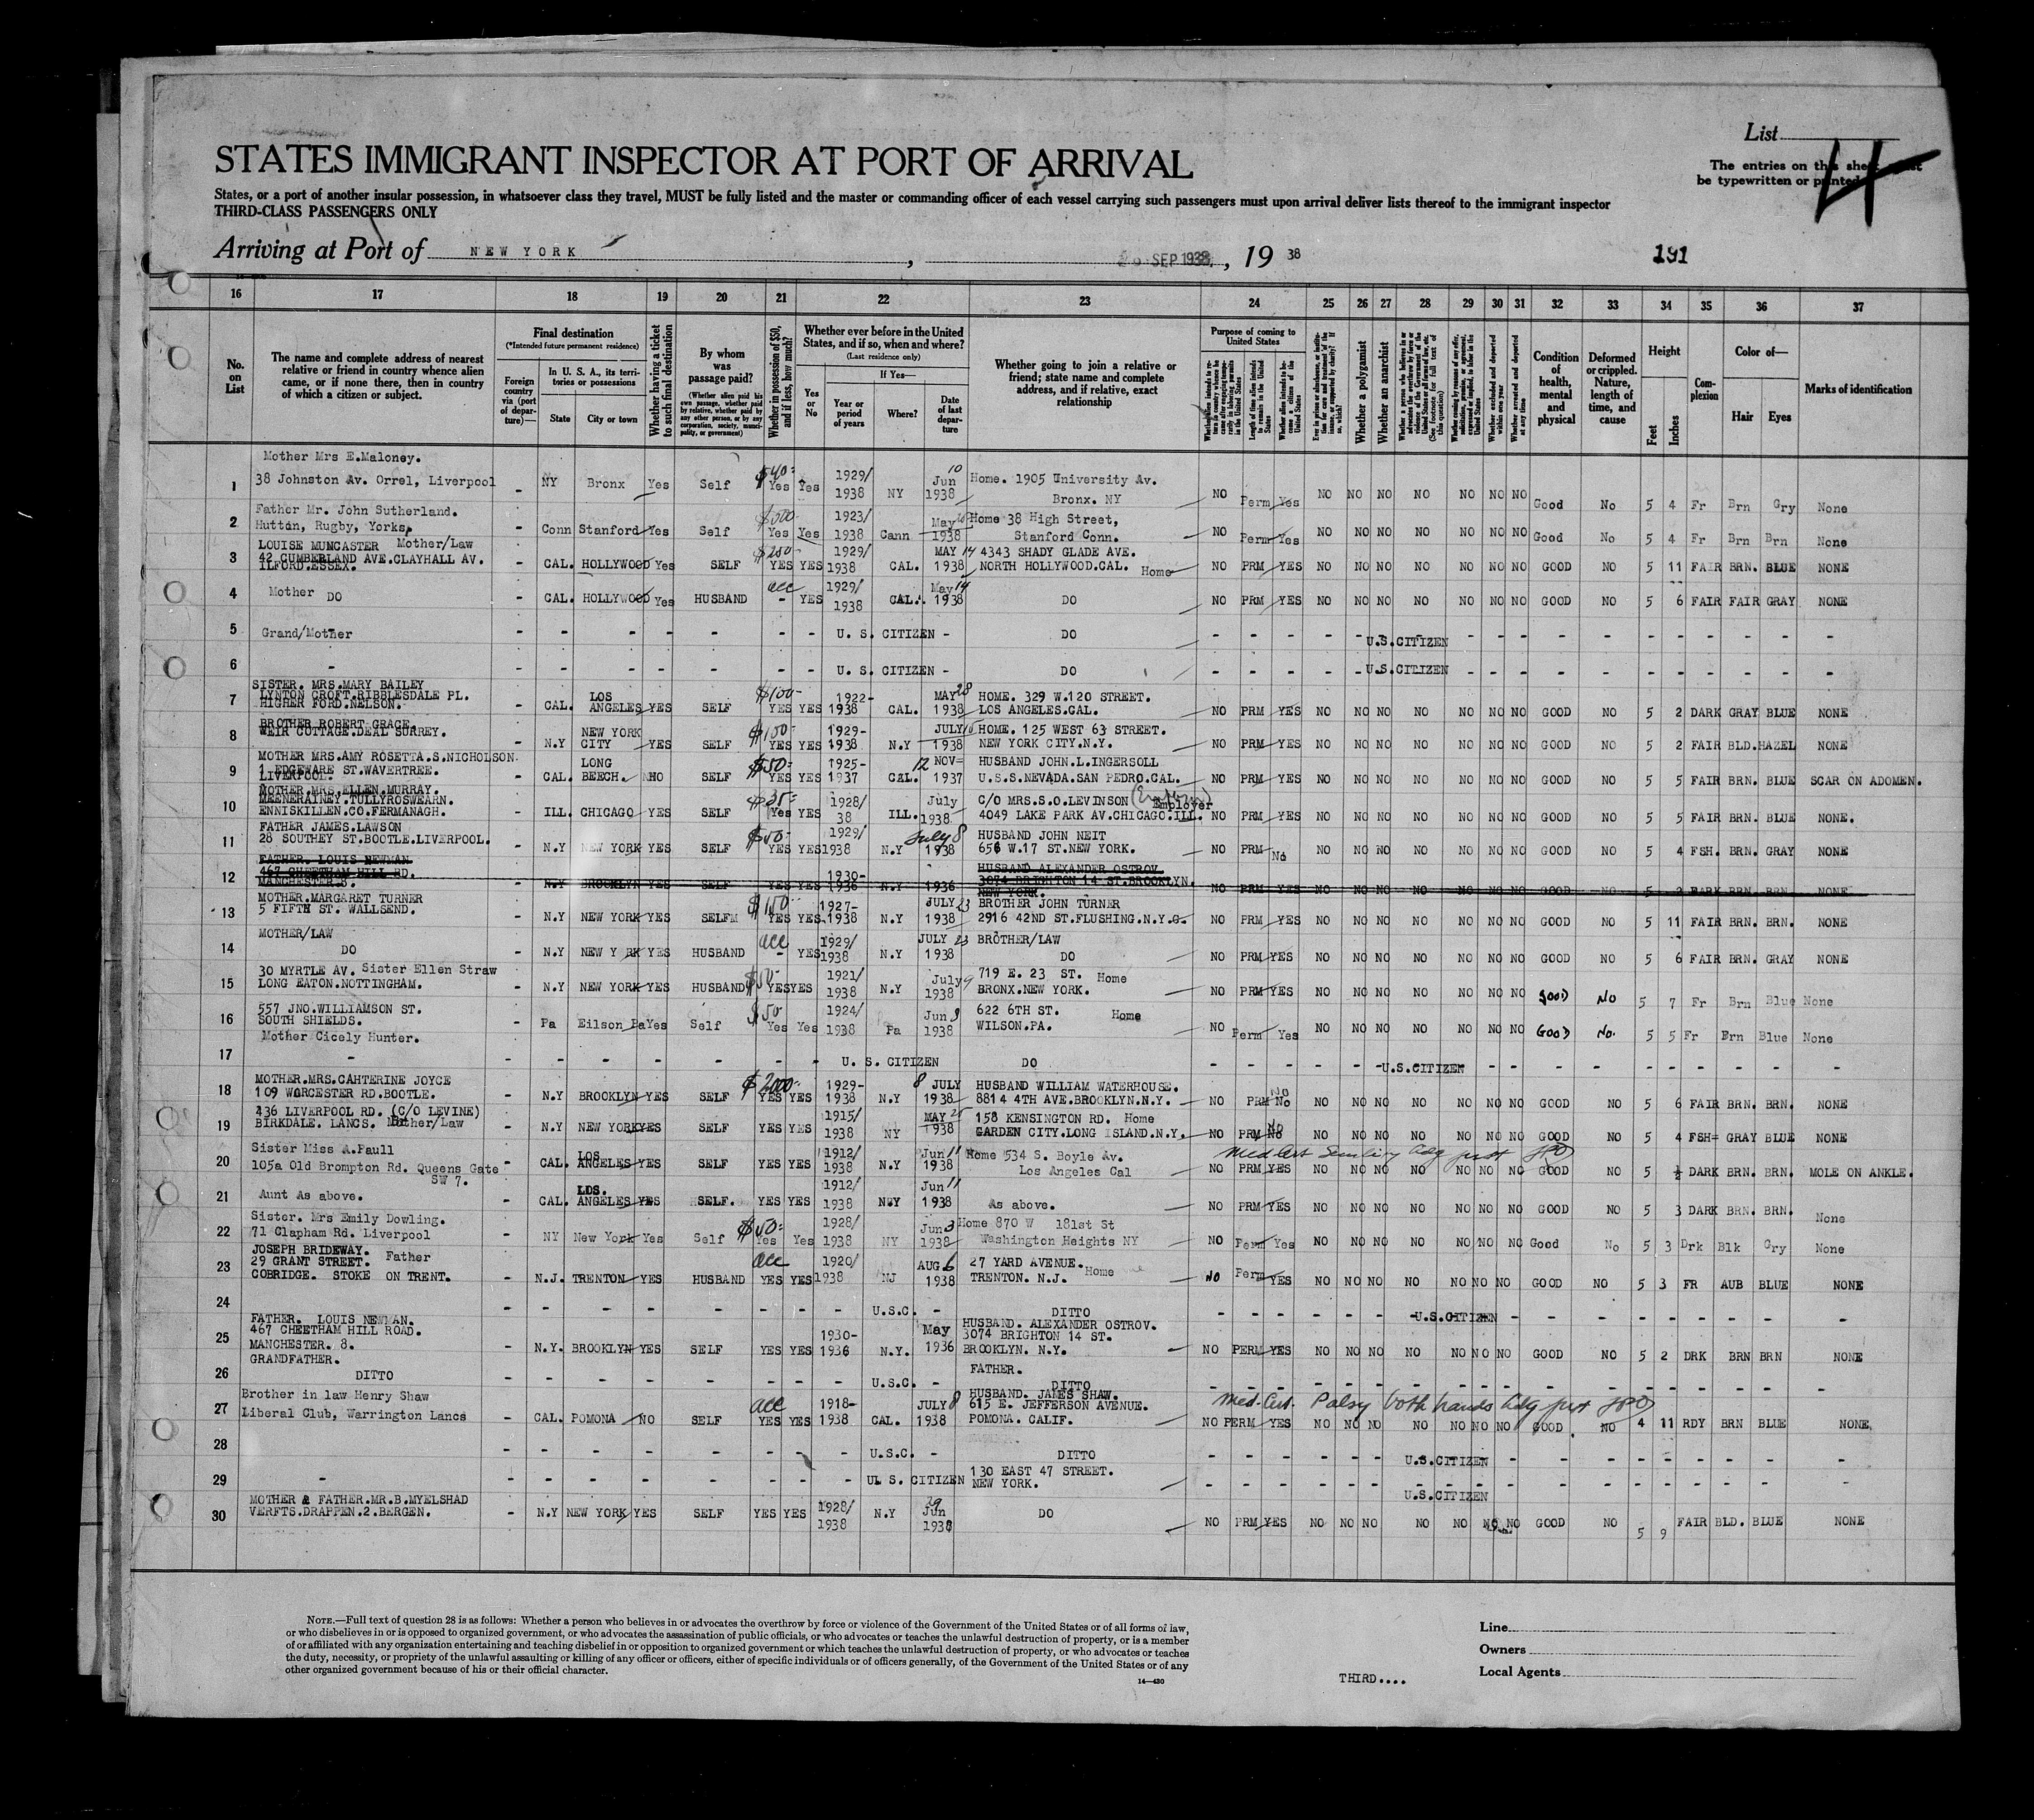 List
4
The entries on this sheet must
be typewritten or printed
STATES IMMIGRANT INSPECTOR AT PORT OF ARRIVAL
States, or a port of another insular possession, in whatsoever class they travel, MUST be fully listed and the master or commanding officer of each vessel carrying such passengers must upon arrival deliver lists thereof to the immigrant inspector
THIRD-CLASS PASSENGERS ONLY
Arriving at Port of NEW YORK, SEP 1938, 1938
191
16 17 18 19 20 21 22 23 24 25 26 27 28 29 30 31 32 33 34 35 36 37
No. on List
The name and complete address of nearest relative or friend in country whence alien came, or if none there, then in country of which a citizen or subject.
Final destination
(*Intended future permanent residence)
Foreign country via (port of departure)—
In U. S. A., its territories or possessions
State
City or town
Whether having a ticket to such final destination
By whom was passage paid?
(Whether alien paid his own passage, whether paid by relative, whether paid by any other person, or by any corporation, society, municipality, or government)
Whether in possession of $50, and if less, how much?
Whether ever before in the United States, and if so, when and where?
(Last residence only)
Yes or No
If Yes—
Year or period of years
Where?
Date of last departure
Whether going to join a relative or friend; state name and complete address, and if relative, exact relationship
Purpose of coming to United States
Length of time alien intends to remain in the United States
Whether alien intends to become a citizen of the United States
Whether a polygamist
Whether an anarchist
Whether excluded and deported within one year
Whether arrested and deported at any time
Condition of health, mental and physical
Deformed or crippled. Nature, length of time, and cause
Height
Feet
Inches
Complexion
Color of—
Hair
Eyes
Marks of identification
Mother Mrs E.Maloney.
1 38 Johnston Av. Orrel, Liverpool - NY Bronx Yes Self $40 Yes Yes 1929/1938 NY Jun 10 1938 Home. 1905 University Av. Bronx. NY NO Perm Yes NO NO NO NO NO NO NO Good No 5 4 Fr Brn Gry None
Father Mr. John Sutherland.
2 Hutton, Rugby, Yorks, - Conn Stanford Yes Self Yes Yes 1923/1938 Cann May 1938 Home 38 High Street, Stanford Conn. NO Perm Yes NO NO NO NO NO NO NO Good No 5 4 Fr Brn Brn None
LOUISE MUNCASTER Mother/Law
3 42 CUMBERLAND AVE.CLAYHALL AV. ILFORD.ESSEX. - CAL. HOLLYWOOD Yes SELF YES YES 1929/1938 CAL. MAY 14 1938 4343 SHADY GLADE AVE. NORTH HOLLYWOOD.CAL. Home NO PRM YES NO NO NO NO NO NO NO GOOD NO 5 11 FAIR BRN. BLUE NONE
4 Mother DO - CAL. HOLLYWOOD Yes HUSBAND acc - YES 1929/1938 CAL. May 14 1938 DO NO PRM YES NO NO NO NO NO NO NO GOOD NO 5 6 FAIR FAIR GRAY NONE
5 Grand/Mother - - - - - - - U. S. CITIZEN - DO U.S.CITIZEN
6 - - - - - - - - U. S. CITIZEN - DO U.S.CITIZEN
SISTER. MRS.MARY BAILEY
7 LYNTON CROFT.RIBBLESDALE PL. HIGHER FORD.NELSON. - CAL. LOS ANGELES YES SELF $100- YES YES 1922-1938 CAL. MAY 28 1938 HOME. 329 W.120 STREET. LOS ANGELES.CAL. NO PRM YES NO NO NO NO NO NO NO GOOD NO 5 2 DARK GRAY BLUE NONE
BROTHER ROBERT GRACE.
8 WEIR COTTAGE.DEAL SURREY. - N.Y NEW YORK CITY YES SELF $100- YES YES 1929-1938 N.Y JULY 1938 HOME. 125 WEST 63 STREET. NEW YORK CITY.N.Y. NO PRM YES NO NO NO NO NO NO NO GOOD NO 5 2 FAIR BLD. HAZEL NONE
MOTHER MRS.AMY ROSETTA.S.NICHOLSON
9 1 EDGEWARE ST.WAVERTREE. LIVERPOOL. - CAL. LONG BEECH. NHO SELF $50- YES YES 1925-1937 CAL. 12 NOV- 1937 HUSBAND JOHN.L.INGERSOLL U.S.S.NEVADA.SAN PEDRO.CAL. NO PRM YES NO NO NO NO NO NO NO GOOD NO 5 5 FAIR BRN. BLUE SCAR ON ADOMEN.
MOTHER.MRS.ELLEN.MURRAY.
10 MEENERAINEY.TULLYROSWEARN. ENNISKILLEN.CO.FERMANAGH. - ILL. CHICAGO YES SELF $35- Yes YES 1928/38 ILL. July 1938 C/O MRS.S.O.LEVINSON Employer 4049 LAKE PARK AV.CHICAGO.ILL. NO PRM YES NO NO NO NO NO NO NO GOOD NO 5 5 FAIR BRN. BLUE NONE.
FATHER JAMES.LAWSON
11 28 SOUTHEY ST.BOOTLE.LIVERPOOL. - N.Y NEW YORK YES SELF $50- YES YES 1929/1938 N.Y July 8 1938 HUSBAND JOHN NEIT 656 W.17 ST.NEW YORK. NO PRM No NO NO NO NO NO NO NO GOOD NO 5 4 FSH. BRN. GRAY NONE
FATHER. LOUIS NEWMAN
12 467 CHEETHAM HILL RD. MANCHESTER.8. - N.Y BROOKLYN YES SELF YES YES 1930-1936 N.Y 1936 HUSBAND ALEXANDER OSTROV. 3074 BRIGHTON 14 ST.BROOKLYN. NEW YORK. NO PRM YES NO NO NO NO NO NO NO GOOD NO 5 2 DARK BRN. BRN. NONE
MOTHER.MARGARET TURNER
13 5 FIFTH ST. WALLSEND. - N.Y NEW YORK YES SELFM $100- YES YES 1927-1938 N.Y JULY 23 1938 BROTHER JOHN TURNER 2916 42ND ST.FLUSHING.N.Y.C. NO PRM YES NO NO NO NO NO NO NO GOOD NO 5 11 FAIR BRN. BRN. NONE
MOTHER/LAW
14 DO - N.Y NEW Y RK YES HUSBAND acc - YES 1929/1938 N.Y JULY 23 1938 BROTHER/LAW DO NO PRM YES NO NO NO NO NO NO NO GOOD NO 5 6 FAIR BRN. GRAY NONE
15 30 MYRTLE AV. Sister Ellen Straw LONG EATON.NOTTINGHAM. - N.Y NEW YORK YES HUSBAND $50- YES YES 1921/1938 N.Y July 9 1938 719 E. 23 ST. Home BRONX.NEW YORK. NO PRM YES NO NO NO NO NO NO NO GOOD NO 5 7 Fr Brn Blue None
16 557 JNO.WILLIAMSON ST. SOUTH SHIELDS. - Pa Eilson Pa Yes Self $50 Yes Yes 1924/1938 Pa Jun 3 1938 622 6TH ST. Home WILSON.PA. NO Perm Yes NO NO NO NO NO NO NO GOOD NO. 5 5 Fr Brn Blue None
Mother Cicely Hunter.
17 - - - - - - - - U. S. CITIZEN DO U.S.CITIZEN
MOTHER.MRS.CAHTERINE JOYCE
18 109 WORCESTER RD.BOOTLE. - N.Y BROOKLYN YES SELF $2000- YES YES 1929-1938 N.Y 8 JULY 1938 HUSBAND WILLIAM WATERHOUSE. 8814 4TH AVE.BROOKLYN.N.Y. NO PRM No No NO NO NO NO NO NO NO GOOD NO 5 6 FAIR BRN. BRN. NONE
19 436 LIVERPOOL RD. (C/O LEVINE) BIRKDALE. LANCS. Brother/Law - N.Y NEW YORK YES SELF YES YES 1915/1938 NY MAY 25 1938 158 KENSINGTON RD. Home GARDEN CITY.LONG ISLAND.N.Y. NO PRM No No NO NO NO NO NO NO NO GOOD NO 5 4 FSH= GRAY BLUE NONE
Sister Miss A.Paull
Med Cert Senility
20 105a Old Brompton Rd. Queens Gate SW 7. - CAL. LOS ANGELES YES SELF YES YES 1912/1938 N.Y Jun 11 1938 Home 534 S. Boyle Av. Los Angeles Cal NO PRM YES NO NO NO NO NO NO NO GOOD NO 5 ½ DARK BRN. BRN. MOLE ON ANKLE.
21 Aunt As above. - CAL. LOS. ANGELES YES SELF. YES YES 1912/1938 N.Y Jun 11 1938 As above. NO PRM YES NO NO NO NO NO NO NO GOOD NO 5 3 DARK BRN. BRN. None
Sister. Mrs Emily Dowling.
22 71 Clapham Rd. Liverpool NY New York Yes Self $50- Yes Yes 1928/1938 NY Jun 3 1938 Home 870 W 181st St Washington Heights NY NO Perm Yes NO NO NO NO NO NO NO Good No 5 3 Drk Blk Gry None
JOSEPH BRIDEWAY. Father
23 29 GRANT STREET. COBRIDGE. STOKE ON TRENT. - N.J. TRENTON YES HUSBAND acc YES YES 1920/1938 NJ AUG 6 1938 27 YARD AVENUE. TRENTON. N.J. Home NO Perm YES NO NO NO NO NO NO NO GOOD NO 5 3 FR AUB BLUE NONE
24 - - - - - - - U.S.C. - DITTO U.S.CITIZEN
FATHER. LOUIS NEWMAN.
25 467 CHEETHAM HILL ROAD. MANCHESTER. 8. - N.Y. BROOKLYN YES SELF YES YES 1930-1936 N.Y. May 1936 HUSBAND. ALEXANDER OSTROV. 3074 BRIGHTON 14 ST. BROOKLYN. N.Y. NO PERM YES NO NO NO NO NO NO NO GOOD NO 5 2 DRK BRN BRN NONE
GRANDFATHER.
26 DITTO - - - - - - - U.S.C. - FATHER. DITTO
Brother in law Henry Shaw
Med. Cert. Palsy both hands
27 Liberal Club, Warrington Lancs - CAL. POMONA NO SELF acc YES YES 1918-1938 CAL. JULY 8 1938 HUSBAND. JAMES SHAW. 615 E. JEFFERSON AVENUE. POMONA. CALIF. NO PERM YES NO NO NO NO NO NO NO GOOD NO 4 11 RDY BRN BLUE NONE
28 - - - - - - - U.S.C. - DITTO U.S.CITIZEN
29 - - - - - - - - UL S. CITIZEN 130 EAST 47 STREET. NEW YORK. U.S.CITIZEN
MOTHER & FATHER.MR.B.MYELSHAD
30 VERFTS.DRAPPEN.2.BERGEN. - N.Y NEW YORK YES SELF YES YES 1928/1938 N.Y 29 Jun 1938 DO NO PRM YES NO NO NO NO NO NO NO GOOD NO 5 9 FAIR BLD. BLUE NONE
NOTE.—Full text of question 28 is as follows: Whether a person who believes in or advocates the overthrow by force or violence of the Government of the United States or of all forms of law,
or who disbelieves in or is opposed to organized government, or who advocates the assassination of public officials, or who advocates or teaches the unlawful destruction of property, or is a member
of or affiliated with any organization entertaining and teaching disbelief in or opposition to organized government or which teaches the unlawful destruction of property, or who advocates or teaches
the duty, necessity, or propriety of the unlawful assaulting or killing of any officer or officers, either of specific individuals or of officers generally, of the Government of the United States or of any
other organized government because of his or their official character.
14—430
THIRD....
Line
Owners
Local Agents